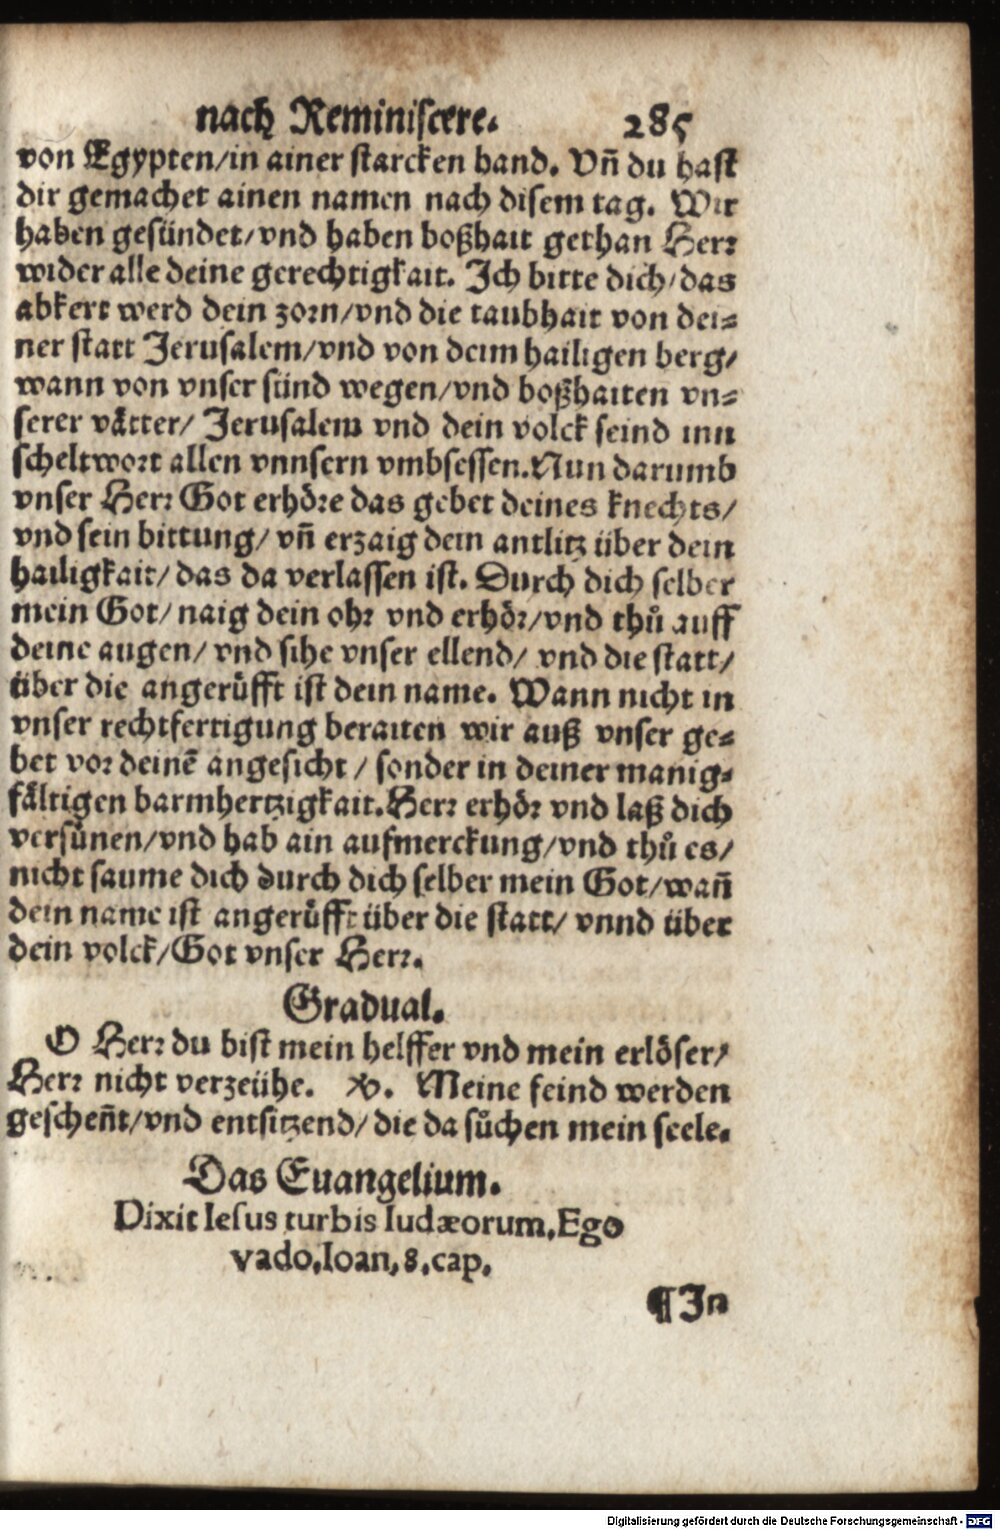 nach Reminiscere. 285
von Egypten/in ainer starcken hand. Vñ du hast
dir gemachet ainen namen nach disem tag. Wir
haben gesündet/vnd haben boßhait gethan Herr
wider alle deine gerechtigkait. Ich bitte dich/das
abkert werd dein zorn/vnd die taubhait von dei⸗
ner statt Jerusalem/vnd von deim hailigen berg/
wann von vnser sünd wegen/vnd boßhaiten vn⸗
serer vaͤtter/ Jerusalem vnd dein volck seind inn
scheltwort allen vnnsern vmbsessen. Nun darumb
vnser Herr Got erhoͤre das gebet deines knechts/
vnd sein bittung/ vñ erzaig dein antlitz über dein
hailigkait/ das da verlassen ist. Durch dich selber
mein Got/ naig dein ohr vnd erhoͤr/vnd thuͦ auff
deine augen/ vnd sihe vnser ellend/ vnd die statt/
über die angeruͤfft ist dein name. Wann nicht in
vnser rechtfertigung beraiten wir auß vnser ge⸗
bet vor deinē angesicht / sonder in deiner manig⸗
faͤltigen barmhertzigkait. Herr erhoͤr vnd laß dich
versuͤnen/vnd hab ain aufmerckung/vnd thuͦ es/
nicht saume dich durch dich selber mein Got/wañ
dein name ist angeruͤfft über die statt/ vnnd über
dein volck/Got vnser Herr.
Gradual.
O Herr du bist mein helffer vnd mein erloͤser/
Herr nicht verzeühe. ℣. Meine feind werden
gescheñt/vnd entsitzend/ die da suͦchen mein seele.
Das Euangelium.
Dixit Iesus turbis Iudæorum, Ego
vado, Ioan, 8. cap.
¶ In
Digitalisierung gefördert durch die Deutsche Forschungsgemeinschaft - DFG